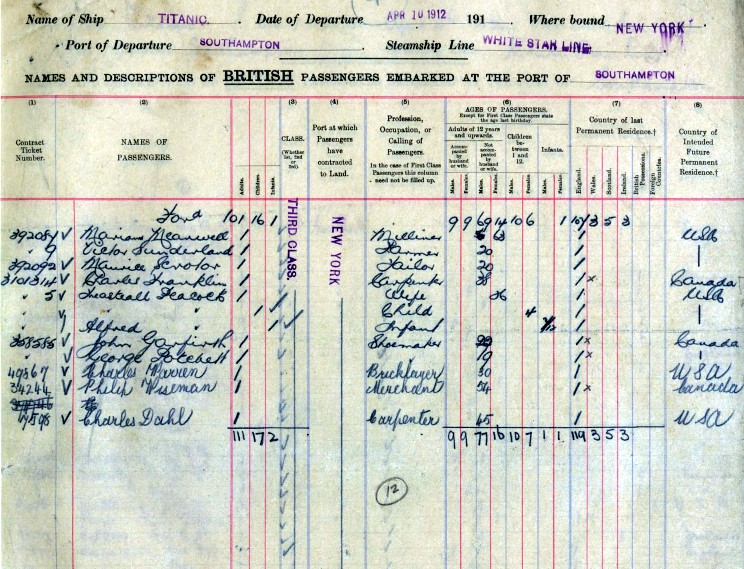 Name of Ship TITANIC. Date of Departure APR 10 1912 191 Where bound NEW YORK
Port of Departure SOUTHAMPTON Steamship Line WHITE STAR LINE
NAMES AND DESCRIPTIONS OF BRITISH PASSENGERS EMBARKED AT THE PORT OF SOUTHAMPTON
(1) (2) (3) (4) (5) (6) (7) (8)
Contract Ticket Number.
NAMES OF PASSENGERS.
Adults. Children. Infants.
CLASS. (Whether 1st, 2nd or 3rd)
Port at which Passengers have contracted to Land.
Profession, Occupation, or Calling of Passengers.
In the case of First Class Passengers this column need not be filled up.
AGES OF PASSENGERS.
Except for First Class Passengers state the age last birthday.
Adults of 12 years and upwards.
Accompanied by husband or wife.
Not accompanied by husband or wife.
Children between 1 and 12.
Infants.
Males. Females. Males. Females. Males. Females. Males. Females.
Country of last Permanent Residence.†
England. Wales. Scotland. Ireland. British Possessions. Foreign Countries.
Country of Intended Future Permanent Residence.†
THIRD CLASS.
NEW YORK
Ford 101 16 1 9 9 69 14 10 6 1 3 5 3
Marion Meanwell 1 Milliner 63 1 USA
9 Victor Sunderland 1 Farmer 20 1
392092 Maurice 1 Tailor 20 1
Charles Franklin 1 Carpenter 38 1 x Canada
5 Peacock 1 Wife 26 1 USA
" 1 Child 4 1
Alfred " 1 Infant 1
John 1 Shoemaker 1 x Canada
George Potchett 1 19 1 x
49867 Charles Warren 1 Bricklayer 30 1 USA
34244 Philip Wiseman 1 Merchant 54 1 x Canada
Charles Dahl 1 Carpenter 45 1 USA
111 17 2 9 9 77 16 10 7 1 1 119 3 5 3
12